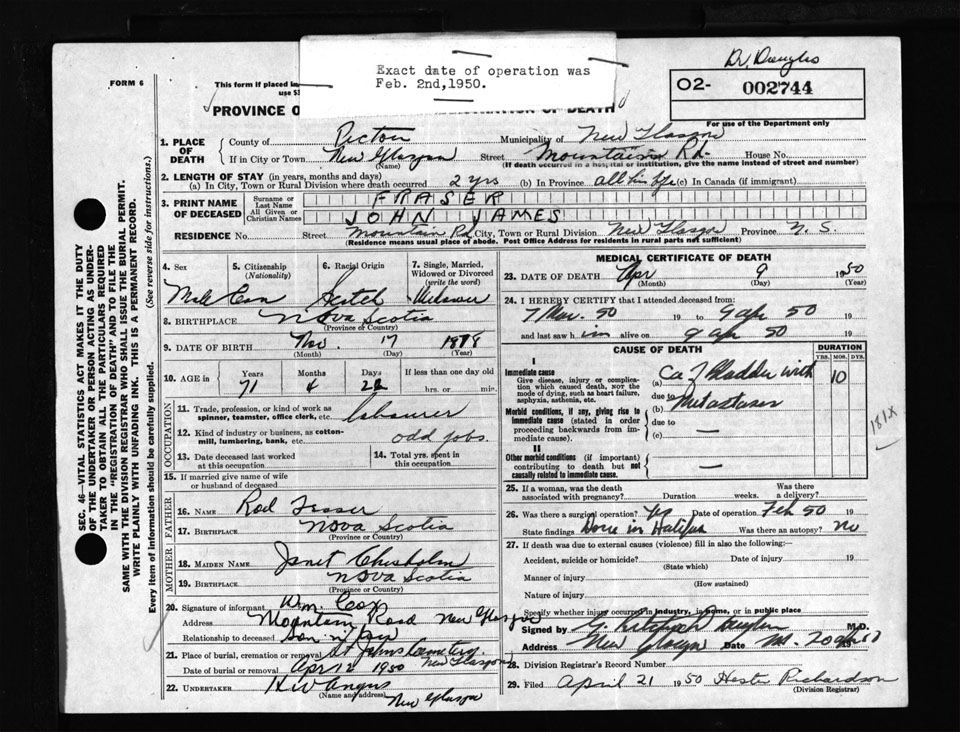 Exact date of operation was
Feb. 2nd,1950.
Dr. Douglas
02- 002744
For use of the Department only
FORM 6
This form if placed in
PROVINCE O
RATION OF DEATH
1. PLACE OF DEATH
County of Pictou Municipality of New Glasgow
If in City or Town New Glasgow (Name) Street Mountain Rd. House No.
(If death occurred in a hospital or institution, give the name instead of street and number)
2. LENGTH OF STAY (in years, months and days)
(a) In City, Town or Rural Division where death occurred 2 yrs (b) In Province all his life (c) In Canada (if immigrant)
3. PRINT NAME OF DECEASED
Surname or Last Name FRASER
All Given or Christian Names JOHN JAMES
RESIDENCE No. Street Mountain Rd City, Town or Rural Division New Glasgow Province N. S.
(Residence means usual place of abode. Post Office Address for residents in rural parts not sufficient)
4. Sex Male
5. Citizenship (Nationality) Can
6. Racial Origin Scotch
7. Single, Married, Widowed or Divorced (write the word) Widower
8. BIRTHPLACE Nova Scotia
(Province or Country)
9. DATE OF BIRTH Nov. 17 1878
(Month) (Day) (Year)
10. AGE in Years 71 Months 4 Days 22 If less than one day old hrs. or min.
OCCUPATION
11. Trade, profession, or kind of work as spinner, teamster, office clerk, etc. labourer
12. Kind of industry or business, as cotton-mill, lumbering, bank, etc. odd jobs.
13. Date deceased last worked at this occupation
14. Total yrs. spent in this occupation
15. If married give name of wife or husband of deceased
FATHER
16. NAME Rod Fraser
17. BIRTHPLACE Nova Scotia
(Province or Country)
MOTHER
18. MAIDEN NAME Janet Chisholm
19. BIRTHPLACE Nova Scotia
(Province or Country)
20. Signature of informant Wm. Cox
Address Mountain Road New Glasgow
Relationship to deceased Son-n-law
21. Place of burial, cremation or removal St Johns Cemetery. New Glasgow
Date of burial or removal Apr 12 1950
22. UNDERTAKER H W Angus
(Name and address) New Glasgow
MEDICAL CERTIFICATE OF DEATH
23. DATE OF DEATH Apr 9 1950
(Month) (Day) (Year)
24. I HEREBY CERTIFY that I attended deceased from
7 Mar. 50 19 to 9 apr 50 19
and last saw him alive on 9 apr 50 19
CAUSE OF DEATH DURATION
YRS. MOS. DYS.
I
Immediate cause
Give disease, injury or complication which caused death, not the mode of dying, such as heart failure, asphyxia, asthenia, etc.
(a) Ca of bladder with 10
due to
Morbid conditions, if any, giving rise to immediate cause (stated in order proceeding backwards from immediate cause).
(b) Metastases
due to
(c) —
II
Other morbid conditions (if important) contributing to death but not causally related to immediate cause. —
181X
25. If a woman, was the death associated with pregnancy? Duration weeks. Was there a delivery?
26. Was there a surgical operation? Yes Date of operation Feb 50 19
State findings Done in Halifax Was there an autopsy? No
27. If death was due to external causes (violence) fill in also the following:
Accident, suicide or homicide? (State which) Date of injury 19
Manner of injury (How sustained)
Nature of injury
Specify whether injury occurred in industry, in home, or in public place
Signed by Douglas M.D.
Address New Glasgow Date 19
28. Division Registrar's Record Number
29. Filed April 21 1950 Hester Richardson
(Division Registrar)
SEC. 46—VITAL STATISTICS ACT MAKES IT THE DUTY
OF THE UNDERTAKER OR PERSON ACTING AS UNDER-
TAKER TO OBTAIN ALL THE PARTICULARS REQUIRED
IN THE "REGISTRATION OF DEATH" AND TO FILE THE
SAME WITH THE DIVISION REGISTRAR WHO SHALL ISSUE THE BURIAL PERMIT.
WRITE PLAINLY WITH UNFADING INK. THIS IS A PERMANENT RECORD.
Every item of information should be carefully supplied. (See reverse side for instructions.)